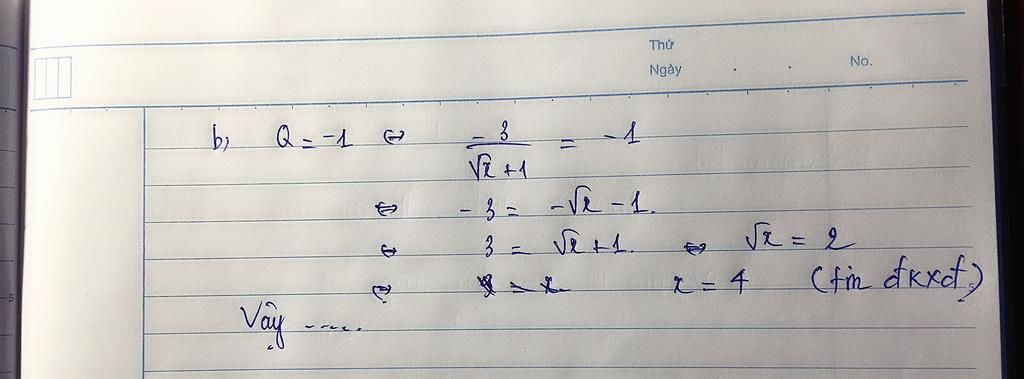 Thứ
Ngày No.
b, Q = -1 ⇔ -3/(√x + 1) = -1
⇔ -3 = -√x - 1.
⇔ 3 = √x + 1. ⇔ √x = 2
⇔ x = 4 (t/m đkxđ)
Vậy .....